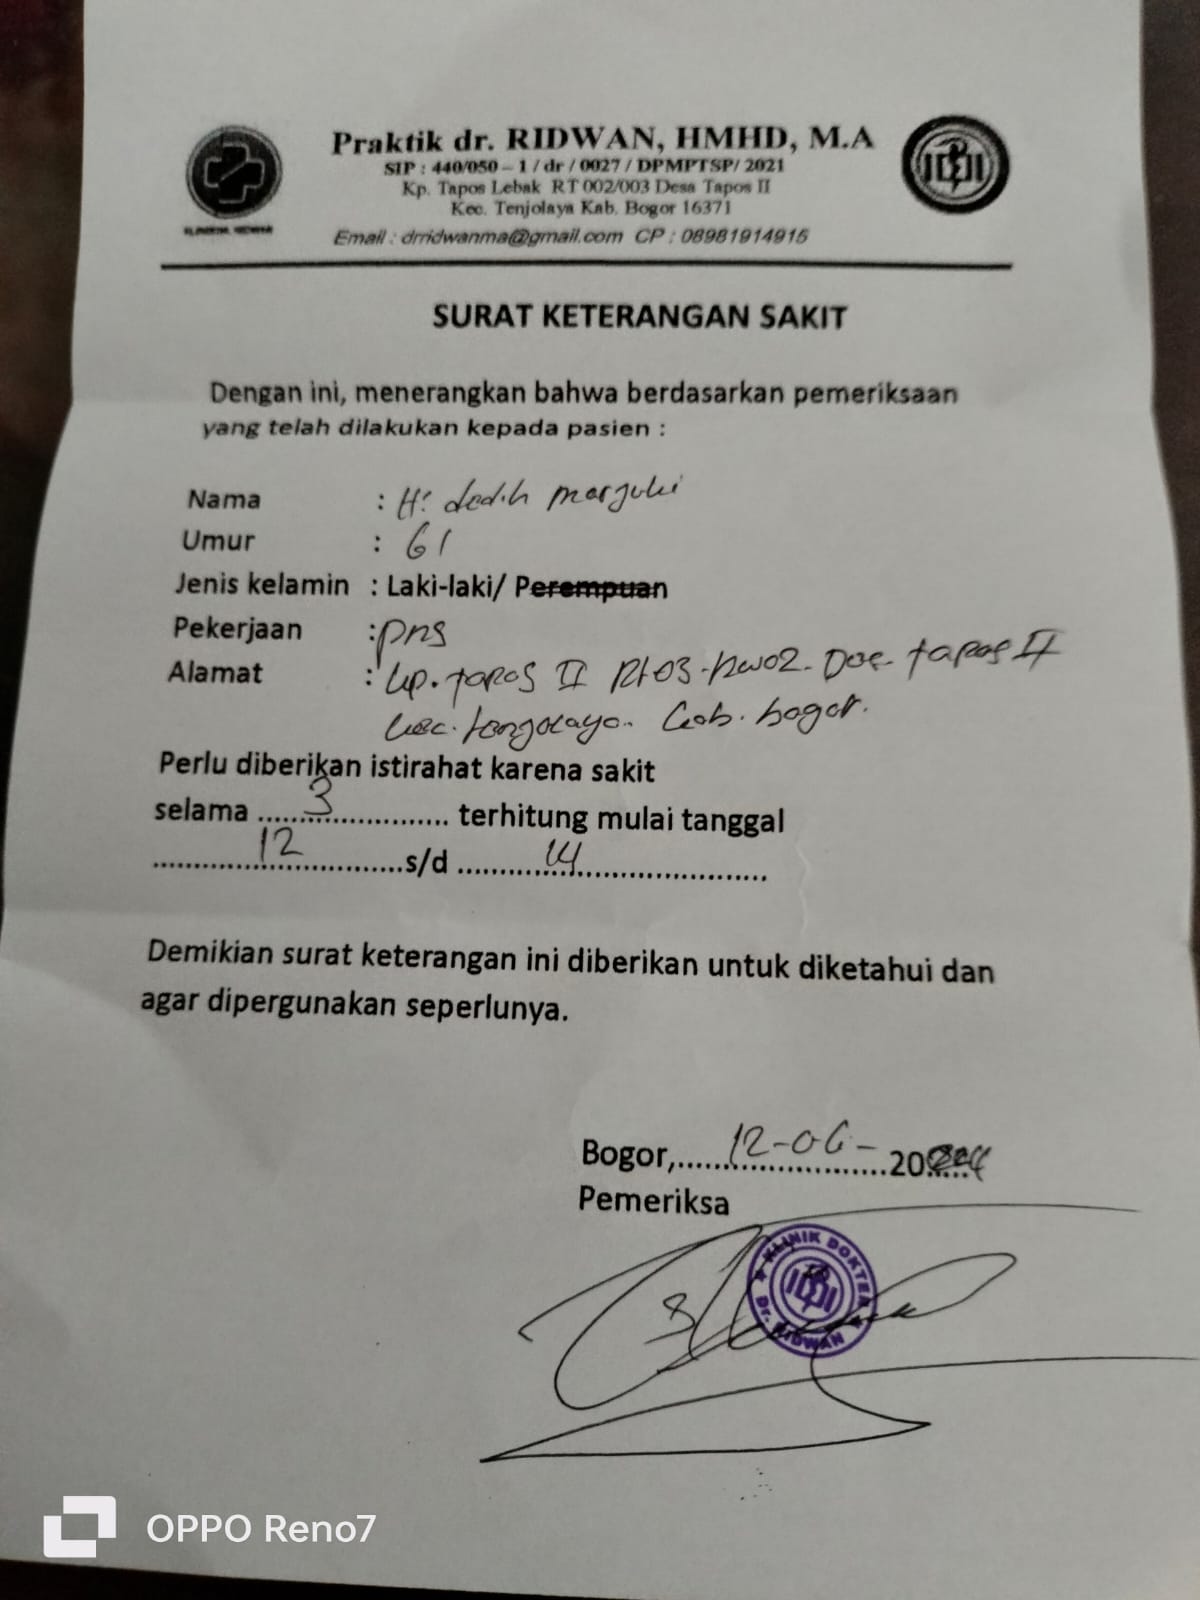 Praktik dr. RIDWAN, HMHD, M.A
SIP : 440/050 – 1 / dr / 0027 / DPMPTSP/ 2021
Kp. Tapos Lebak RT 002/003 Desa Tapos II
Kec. Tenjolaya Kab. Bogor 16371
Email : drridwanma@gmail.com CP : 08981914915
SURAT KETERANGAN SAKIT
Dengan ini, menerangkan bahwa berdasarkan pemeriksaan
yang telah dilakukan kepada pasien :
Nama : H. dedih marzuki
Umur : 61
Jenis kelamin : Laki-laki/ Perempuan
Pekerjaan : pns
Alamat : kp. tapos II Rt03-Rw02. Des. tapos II
kec. tenjolaya. kab. bogor.
Perlu diberikan istirahat karena sakit
selama ......3...................... terhitung mulai tanggal
............12.................s/d ..........14.........................
Demikian surat keterangan ini diberikan untuk diketahui dan
agar dipergunakan seperlunya.
Bogor,.....12-06-.....2024
Pemeriksa
KLINIK DOKTER
Dr. RIDWAN
OPPO Reno7